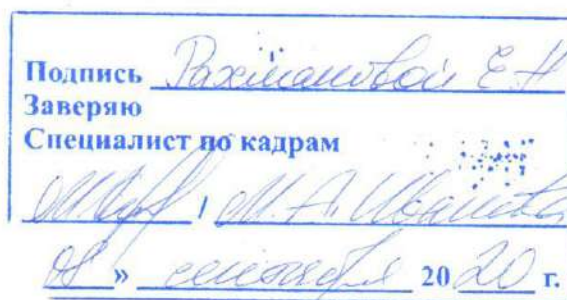 Подпись Рахмановой Е.Н
Заверяю
Специалист по кадрам
/ М.А. Иванова
08 » сентября 2020 г.